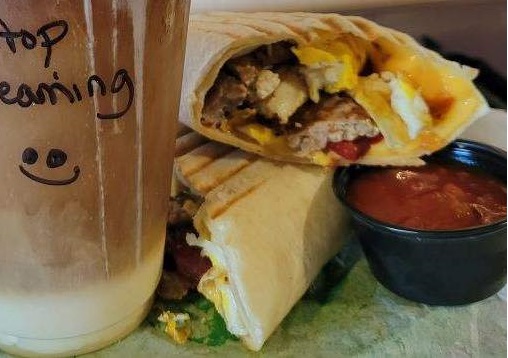 top
eaming